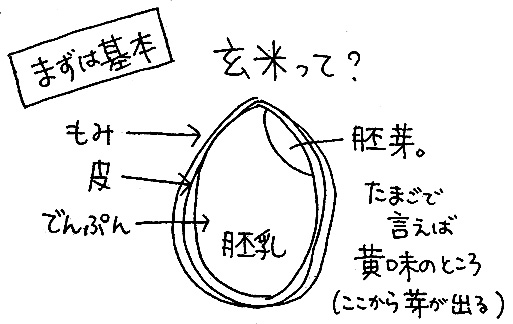 まずは基本
玄米って？
もみ
皮
でんぷん
胚乳
胚芽。
たまごで
言えば
黄味のところ
(ここから芽が出る)